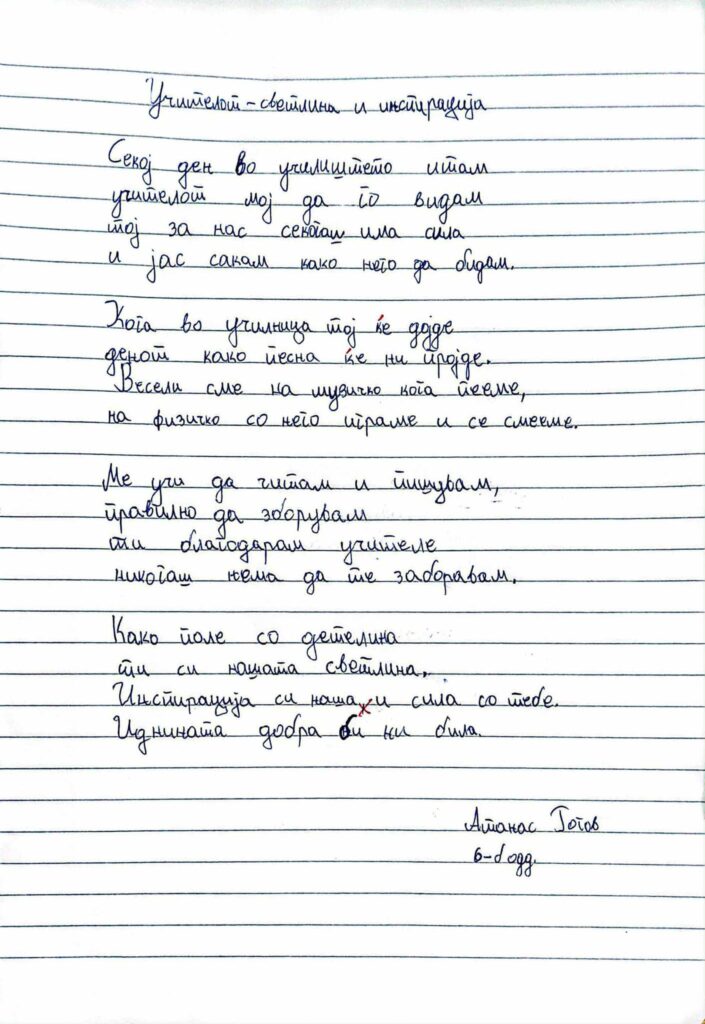 Учителот - светлина и инспирација
Секој ден во училиштето итам
учителот мој да го видам
тој за нас секогаш има сила
и јас сакам како него да бидам.
Кога во училница тој ќе дојде
денот како песна ќе ни пројде.
Весели сме на музичко кога пееме,
на физичко со него играме и се смееме.
Ме учи да читам и пишувам,
правилно да зборувам
ти благодарам учителе
никогаш нема да те заборавам.
Како поле со детелина
ти си нашата светлина.
Инспирација си наша и сила со тебе.
Иднината добра би ни била.
Атанас Гогов
6-б одд.